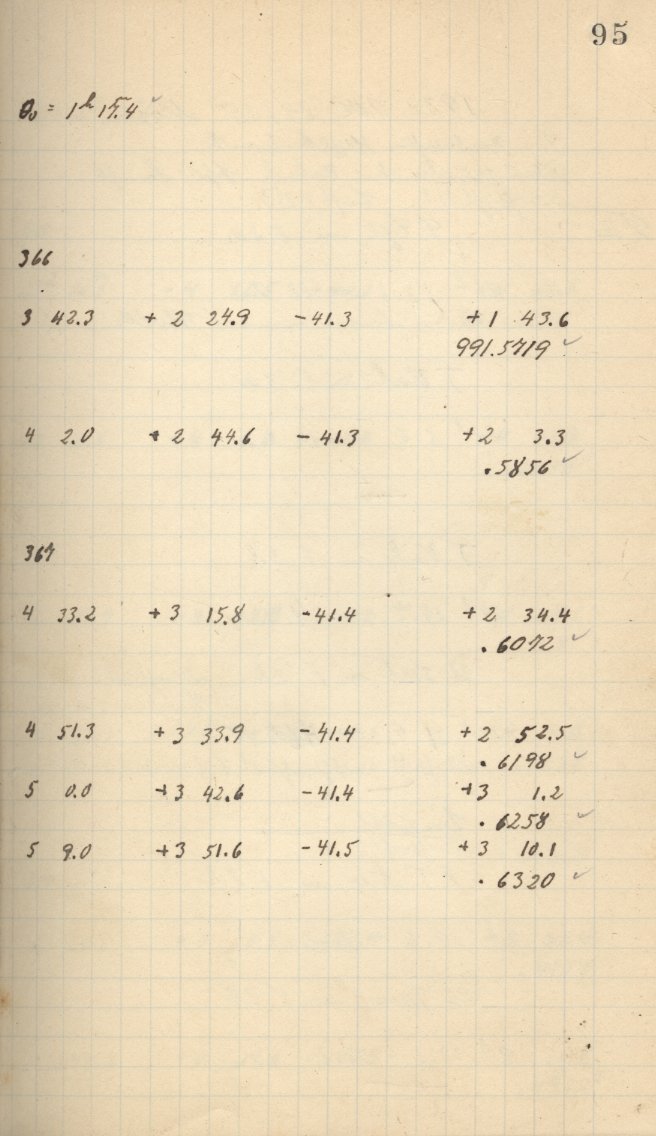 95
θ₀ = 1ʰ 17.4 ✓
366
3 42.3 + 2 24.9 - 41.3 + 1 43.6
991.5719 ✓
4 2.0 + 2 44.6 - 41.3 + 2 3.3
.5856 ✓
367
4 33.2 + 3 15.8 - 41.4 + 2 34.4
.6072 ✓
4 51.3 + 3 33.9 - 41.4 + 2 52.5
.6198 ✓
5 0.0 + 3 42.6 - 41.4 + 3 1.2
.6258 ✓
5 9.0 + 3 51.6 - 41.5 + 3 10.1
.6320 ✓